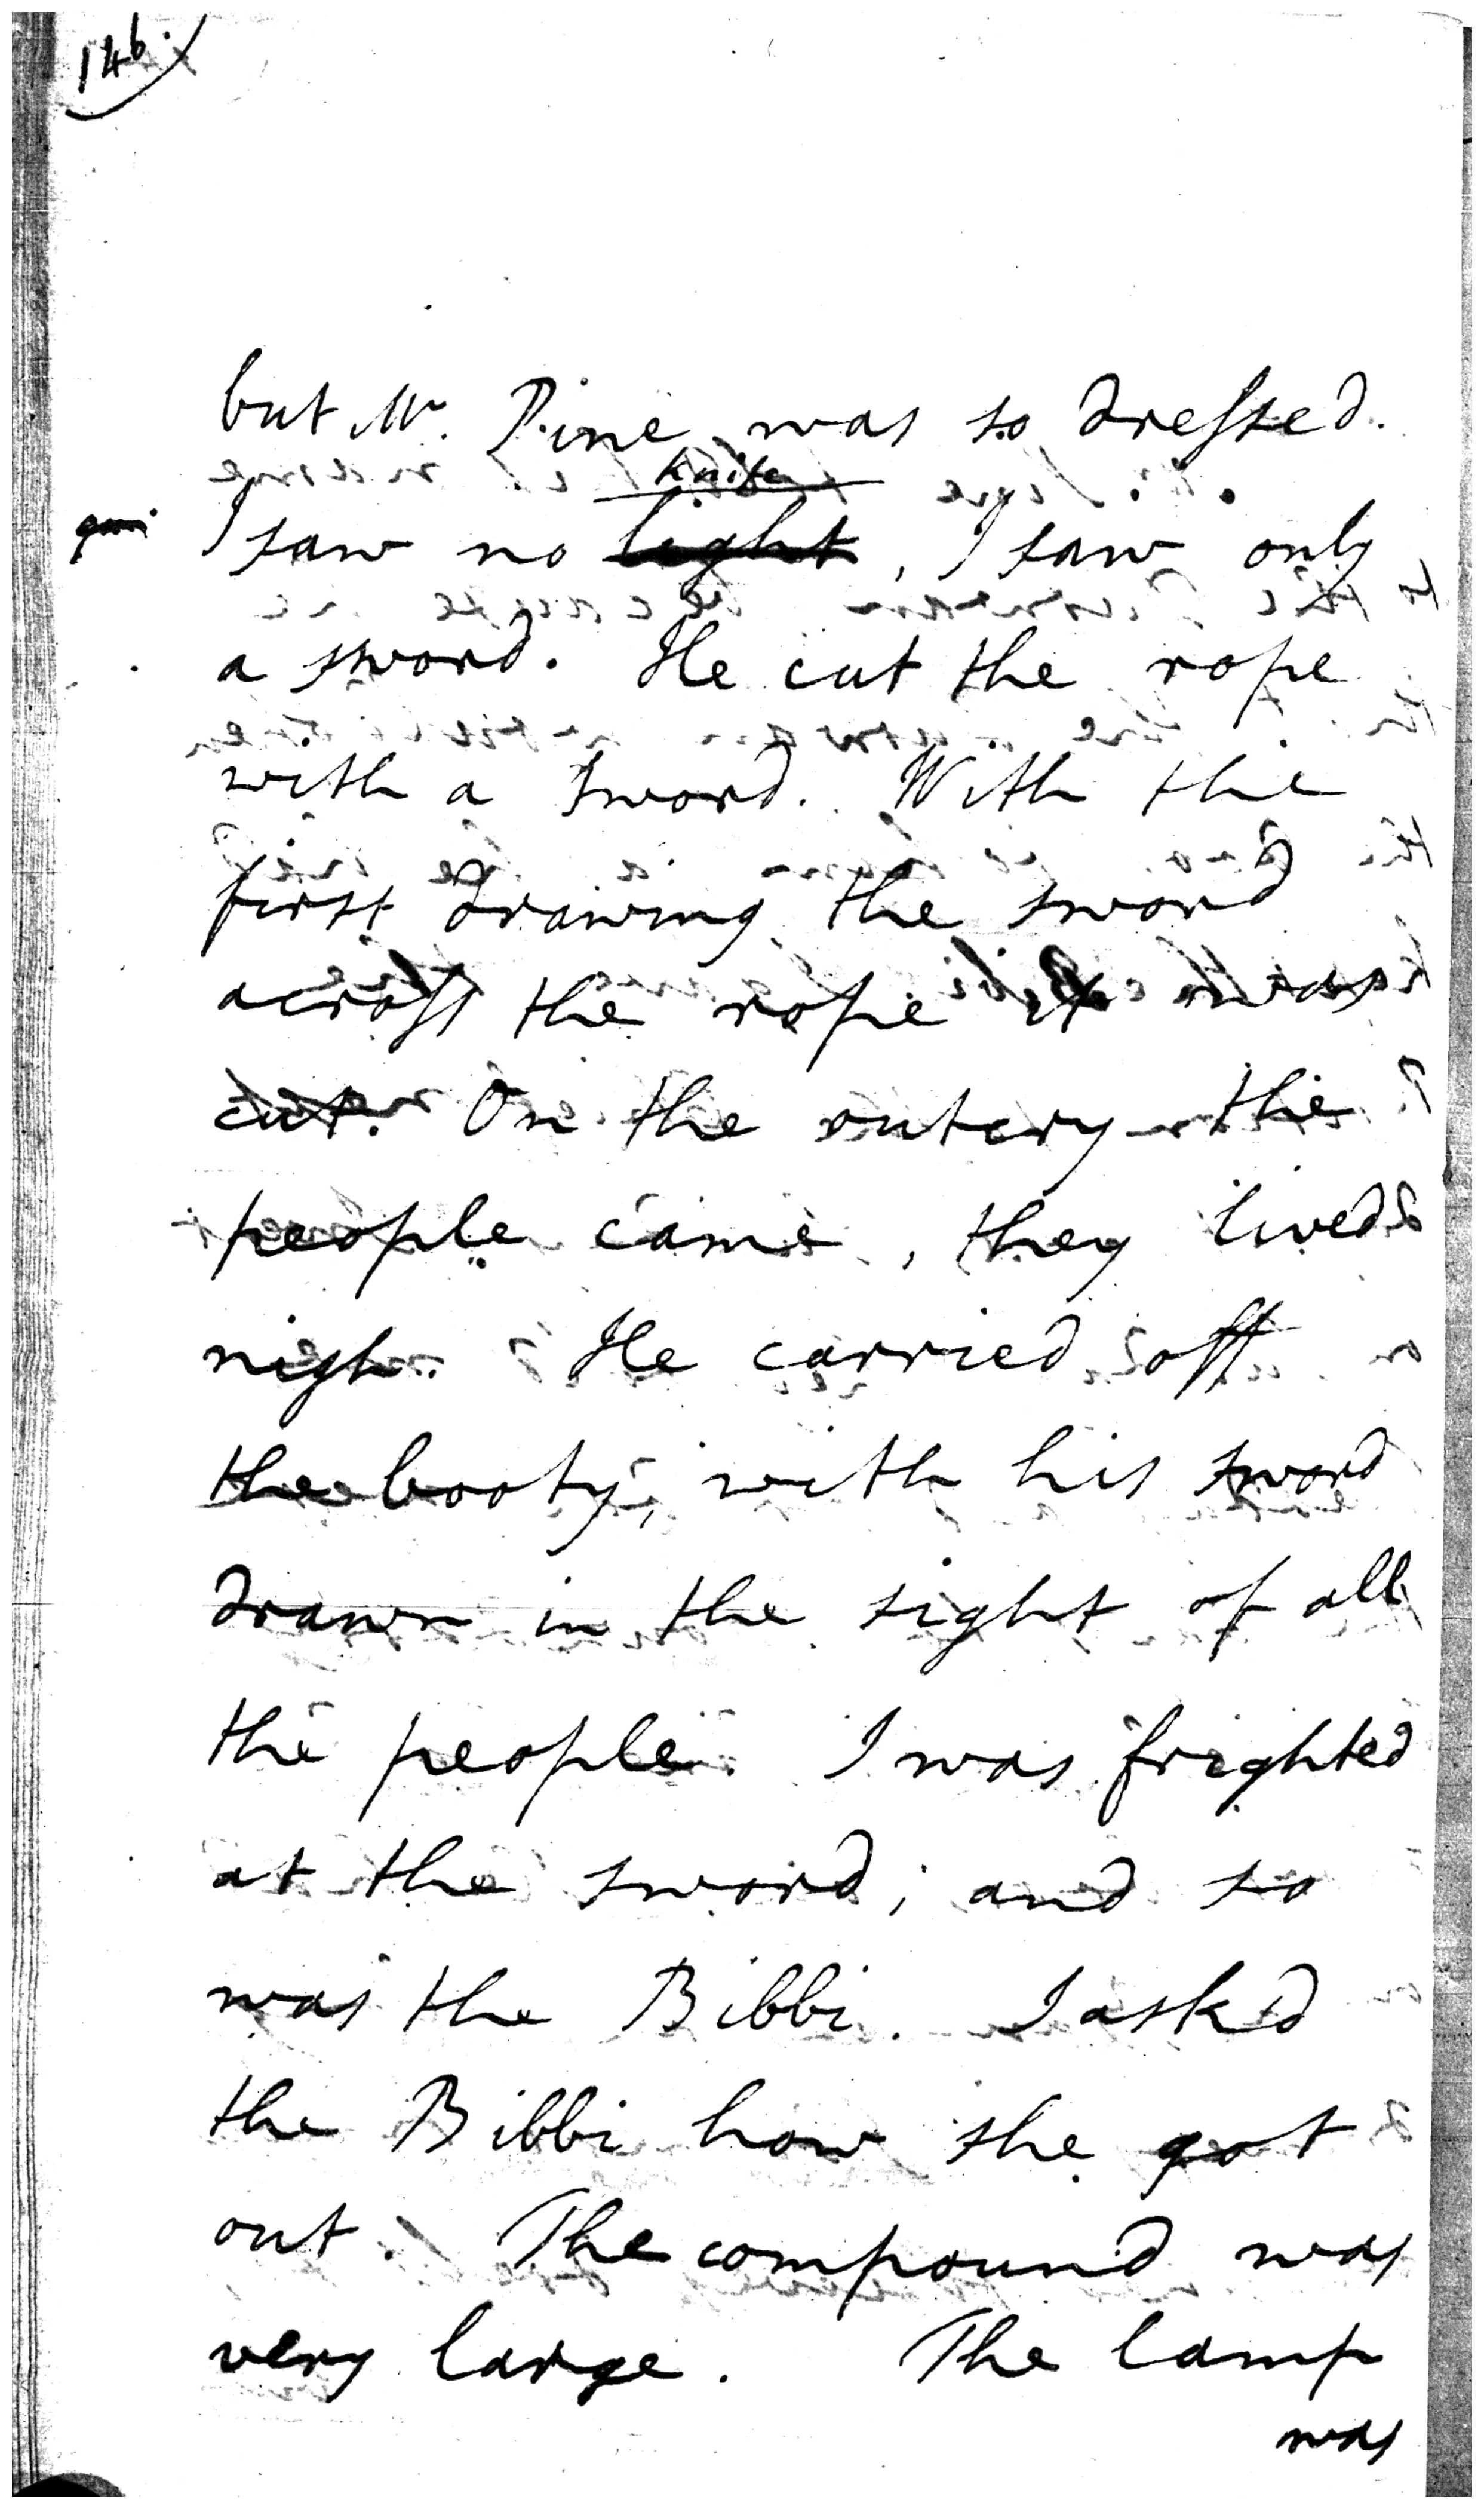 146.
but Mr. Pine was so dressed.
knife
qu. I saw no light, I saw only
a sword. He cut the rope
with a sword. With the
first drawing the sword
across the rope it was
cut. On the outcry the
people came, they lived
nigh. He carried off
the booty, with his sword
drawn in the sight of all
the people. I was frighted
at the sword, and so
was the Bibbi. I ask'd
the Bibbi how she got
out. The compound was
very large. The lamp
was